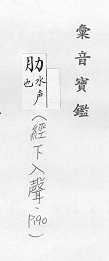 彙音寶鑑
肋水声
也
(經下入聲,